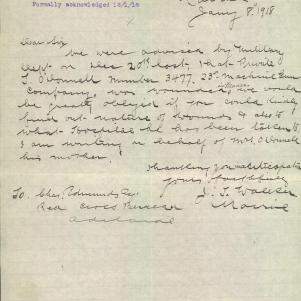 Formally acknowledged 12/1/18
Jany 8th 1918
Dear Sir
We were advised by Military
Dept on Dec 20th last, that Private
J. O'Donnell Number 3477. 23rd Machine Gun
Company, was wounded we would
be greatly obliged if you could kindly
find out nature of wounds & also to
what Hospital he has been taken to
I am writing on behalf of Mrs O'Donnell
his mother.
Thanking you in anticipation
Yours faithfully
To. Chas. Edmunds Esq
Red Cross Bureau
Adelaide